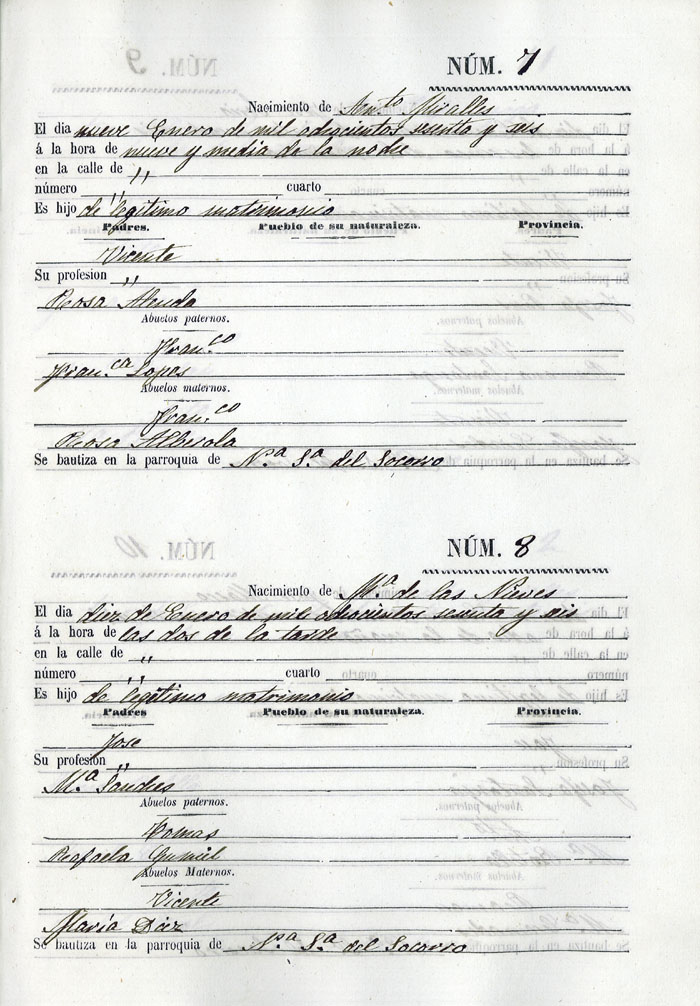 NÚM. 7
Nacimiento de Miralles
El dia nueve Enero de mil ochocientos sesenta y seis
á la hora de nueve y media de la noche
en la calle de "
número " cuarto
Es hijo de legitimo matrimonio
Padres. Pueblo de su naturaleza. Provincia.
Vicente
Su profesion "
Rosa
Abuelos paternos.
Fran.co
Fran.ca Lopes
Abuelos maternos.
Fran.co
Rosa Alberola
Se bautiza en la parroquia de N.a S.a del Socorro
NÚM. 8
Nacimiento de M.a de las Nieves
El dia diez de Enero de mil ochocientos sesenta y seis
á la hora de las dos de la tarde
en la calle de "
número " cuarto
Es hijo de legitimo matrimonio
Padres Pueblo de su naturaleza. Provincia.
Jose
Su profesion "
M.a
Abuelos paternos.
Tomas
Rafaela Gumiel
Abuelos Maternos.
Vicente
María Díez
Se bautiza en la parroquia de N.a S.a del Socorro